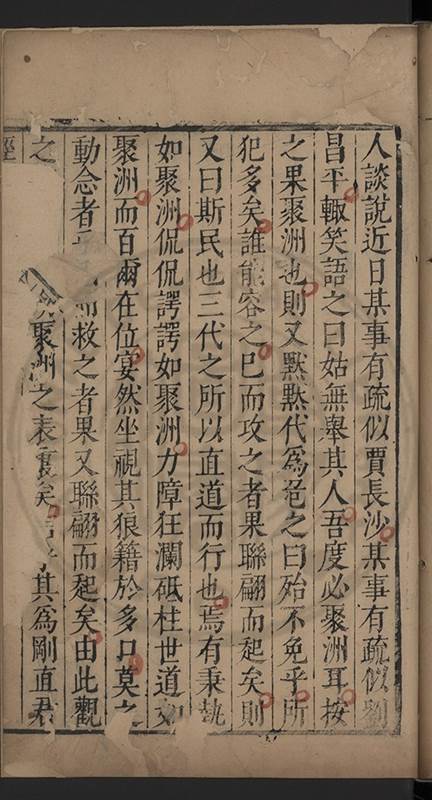 人談說近日某事有疏似賈長沙某事有疏似劉
昌平輙笑語之曰姑無舉其人吾度必聚洲耳按
之果聚洲也則又默默代爲危之曰殆不免乎所
犯多矣誰能容之已而攻之者果聯翩而起矣則
又曰斯民也三代之所以直道而行也焉有秉執
如聚洲侃侃諤諤如聚洲力障狂瀾砥柱世道如
聚洲而百爾在位宴然坐視其狼籍於多口莫之
動念者乎而救之者果又聯翩而起矣由此觀
之聚洲之表裏矣其爲剛直君